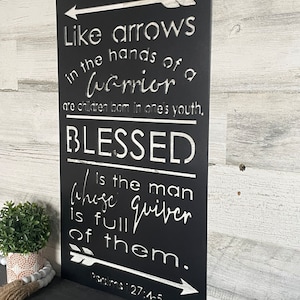 Like arrows
in the hands of a
warrior
are children born in one's youth.
BLESSED
is the man
whose quiver
is full
of them.
Psalms 127:4-5